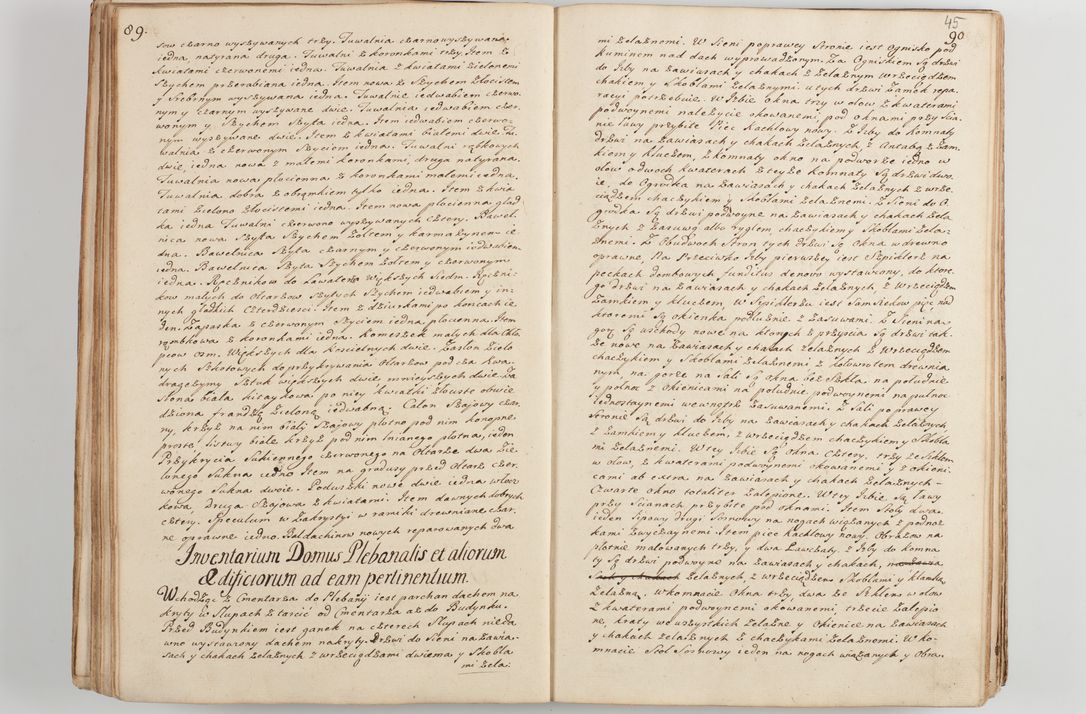 89.
sow czarno wyszywanych trzy. Tuwalnia czarno wyszywana
iedna, natyrana druga. Tuwalni z koronkami trzy Item z
kwiatami czerwonemi iedna. Tuwalnia z kwiatami zielonemi
Szychem przerabiana iedna. Item nowa z Szychem złocistem
y srebrnym wyszywana iedna. Tuwalnie iedwabiem czerwo-
nym y czarnym wyszywane dwie. Tuwalnia iedwabiem czer-
wonym y Szychem szyta iedna. Item iedwabiem czerwo-
nym wyszywane dwie. Item z kwiatami białemi dwie. Tu
walnia z czerwonem szyciem iedna. Tuwalni rąbkowych
dwie, iedna nowa z małemi koronkami, druga natyrana.
Tuwalnia nowa płocienna z koronkami małemi iedna.
Tuwalnia dobra z obrąmkiem tylko iedna. Item z kwia
tami zielono złocistemi iedna. Item nowa płocienna gład
ka iedna Tuwalni czerwono wyszywanych cztery. Bawel-
nica nowa szyta Szychem żołtem y karmazynem ie
dna. Bawelnica szyta czarnym y czerwonym iedwabiem
iedna. Bawelnica szyta Szychem żołtem y czerwonym
iedna. Ręcznikow do Lawaterza większych siedm. Ręczni-
kow małych do ołtarzow szytych Szychem iedwabiem y in-
nych gładkich czterdzieści. Item z dziurkami po końcach ie
den. Zapaska z czerwonym szyciem iedna płocienna. Item
rąmbkowa z koronkami iedna. Komeszek małych dla Chło
pcow osm. Większych dla kościelnych dwie. Zasłon zielo
nych Szkotowych do przykrywania ołtarzow pod czas kwa
dragezymy sztuk większych dwie, mnieyszych dwie. Za
słona biała kitaykowa po niey kwiatki złociste obwie
dziona frandzlą zieloną iedwabną. Całun szaiowy czar
ny, krzyż na nim biały szaiowy płotno pod nim konopne
proste, listwy białe krzyż pod nim lnianego płotna, ieden
Przykrycia sukiennego czerwonego na ołtarze dwa zie
lonego sukna iedno Item na gradusy przed ołtarz czer-
wonego sukna dwoie. Poduszki nowe dwie iedna włocz
kowa, druga szaiowa z kwiatami. Item dawnych dobrych
cztery. Speculum w zakrystyi w ramki drewniane czar
ne oprawne iedno. Baldachinow nowych reparowanych dwa
Inventarium Domus Plebanalis et aliorum
Ædificiorum ad eam pertinentium.
Wchodząc z Cmentarza do Plebanij iest parchan dachem na
kryty w słupach z tarcic od Cmentarza aż do Budynku.
Przed Budynkiem iest ganek na czterech słupach nieda
wno wystawiony dachem nakryty. Drzwi do sieni na zawia-
sach y chakach żelaznych z wrzeciądzami dwiema y skobla
mi żela:
45
90
mi żelaznemi. W sieni poprawey stronie iest ognisko pod
kuminem nad dach wyprowadzonym. Za ogniskiem są drzwi
do Izby na zawiasach y chakach z żelaznym wrzeciądzem
chakiem y skoblami żelaznemi. u tych drzwi zamek repa
racyi potrzebuie. W Izbie okna trzy w ołow z kwaterami
podwoynemi należycie okowanemi, pod oknami przy ścia
nie ławy przybite Piec kachlowy nowy. Z Izby do komnaty
drzwi na zawiasach y chakach żelaznych, z antabą z zam
kiem y kluczem, z komnaty okno na podworze iedno w
ołow o dwoch kwaterach z teyże komnaty są drzwi dwo
ie, do ogrodka na zawiasach y chakach żelaznych z wrze
ciądzem chaczykiem y skoblami żelaznemi. Z sieni do o
grodka są drzwi podwoyne na zawiasach y chakach żela
znych z zasuwą albo ryglem, chaczykiem y skoblami żela-
znemi. Z obudwoch stron tych drzwi są okna w drewno
oprawne, Na przeciwko Izby pierwszey iest spiklerz na
peckach dombowych funditus denovo wystawiony, do ktore-
go drzwi na zawiasach y chakach żelaznych, z wrzeciądzem
zamkiem y kluczem, w spiklerzu iest samsiekow pięć, nad
ktoremi są okienka podłużnie z zasuwami. Z sieni na
gorę są wschody nowe na ktorych z przyścia są drzwi tak-
że nowe na zawiasach y chakach żelaznych z wrzeciądzem
chaczykiem y skoblami żelaznemi z kołowrotem drewnia
nym, na gorze na sali są okna bez szkła, na południe
y połnoc z okienicami na południe podwoynemi na pułnoc
iednostaynemi wewnątrz zasuwanemi. Z Sali po prawey
stronie są drzwi do Izby na zawiasach y chakach żelaznych,
z zamkiem y kluczem, z wrzeciądzem chaczykiem y skobla
mi żelaznemi. W tey Izbie są okna cztery, trzy ze szkłem
w ołow, z kwaterami podwoynemi okowanemi y z okieni
cami ab extra na zawiasach y chakach żelaznych -
czwarte okno totaliter zalepione. W tey Izbie są ławy
przy ścianach przybite pod oknami. Item stoły dwa.
ieden lipowy drugi sosnowy na nogach wiązanych z podnoż
kami zwyczaynemi Item piec kachlowy nowy. Obrazow na
płotnie malowanych trzy, y dwa Lanczafty, z Izby do komna
ty są drzwi podwoyne na zawiasach y chakach, na zawia
sach y chakach żelaznych, z wrzeciądzem skoblami y klamką
żelazną. W komnacie okna trzy, dwa ze szkłem w ołow
z kwaterami podwoynemi okowanemi, trzecie zalepio
ne, kraty we wszystkich żelazne y okienice na zawiasach
y chakach żelaznych z chaczykami żelaznemi. W ko-
mnacie stoł sosnowy ieden na nogach wiązanych y obra.